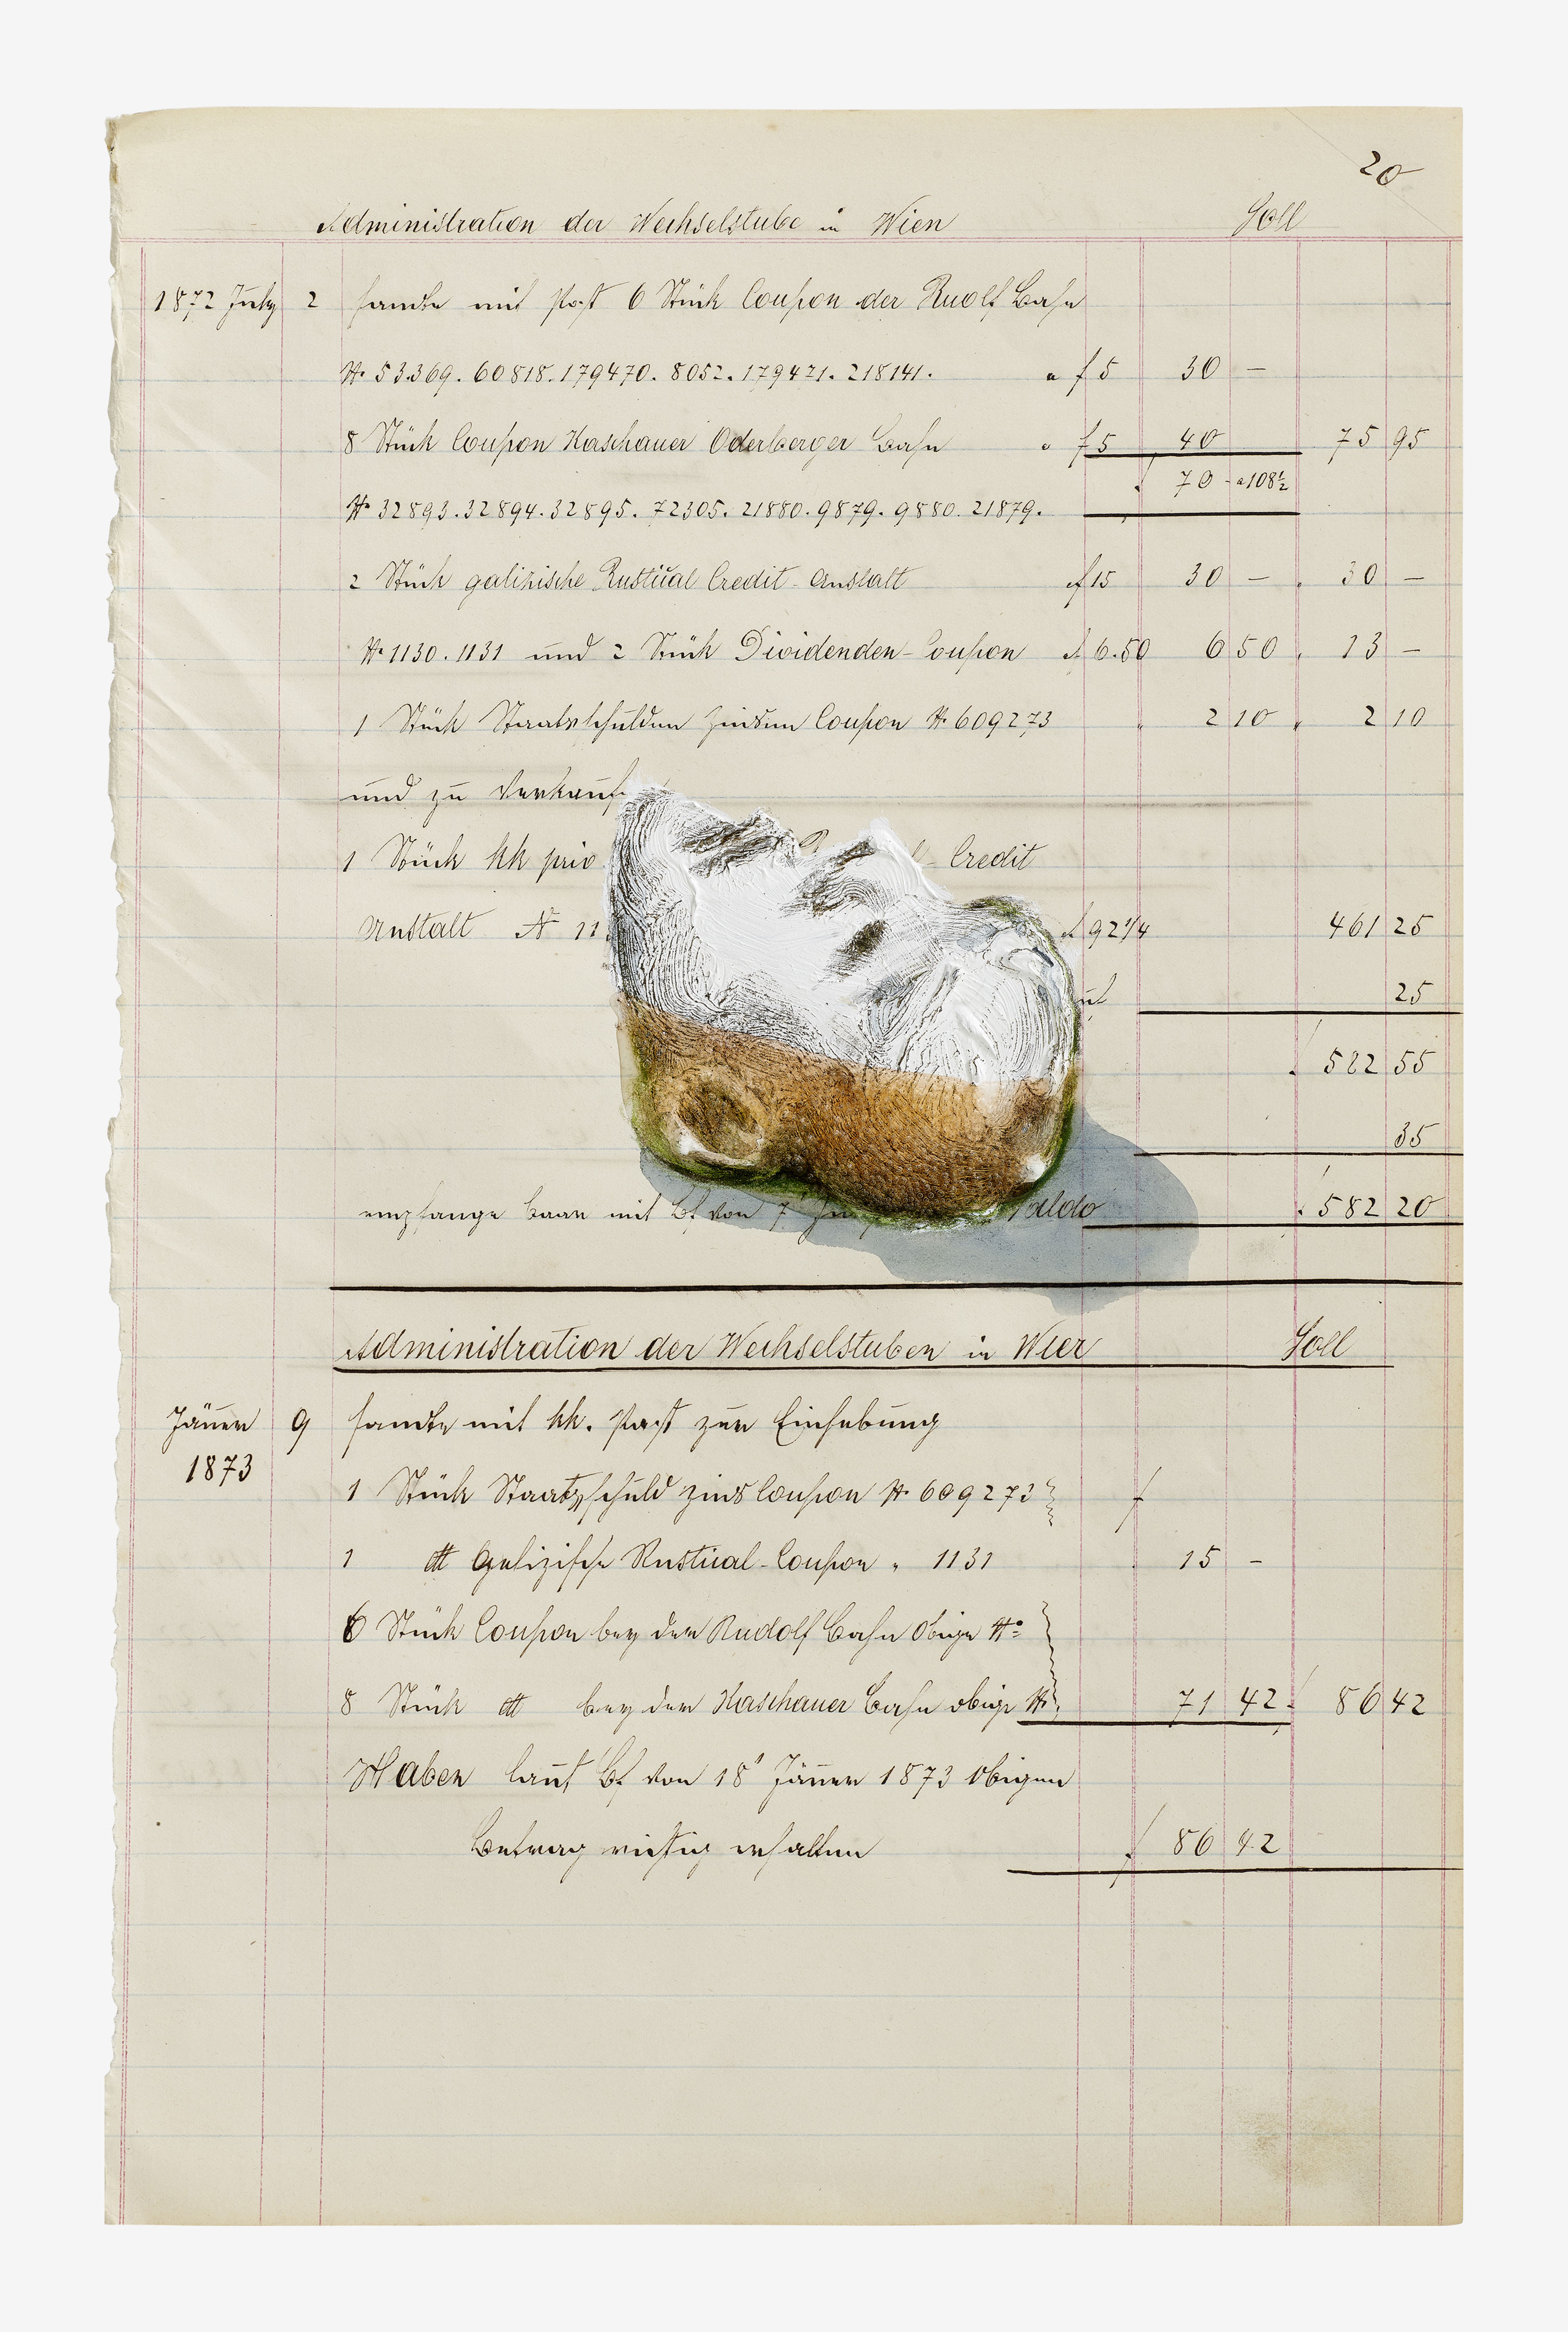 20
Administration der Wechselstube in Wien Soll
1872 July 2 sandte mit Post 6 Stück Coupon der Ruolf Bahn
No 53.369. 60818. 179470. 8052. 179471. 218141. a f 5 30 —
8 Stück Coupon Kaschauer Oderberger Bahn a f 5 40 75 95
70 - a 108½
No 32893. 32894. 32895. 72305. 21880. 9879. 9880. 21879.
2 Stück galizische Rustical Credit-Anstalt a f 15 30 — 30 —
No 1130. 1131 und 2 Stück Dividenden-Coupon a 6.50 6 50 13 —
1 Stück Staatsschulden Zinsen Coupon No 609273 2 10 2 10
und zu Verkauf
1 Stück kk priv Credit
Anstalt No 11 a 92 1/4 461 25
25
582 55
35
empfange baar mit Bf von 7t Saldo f 582 20
Administration der Wechselstuben in Wien Soll
Jäner 1873 9 sandte mit kk. Post zur Einhebung
1 Stück Staatsschuld Zins Coupon No 609273 f
1 dt Galizische Rustical-Coupon " 1131 15 -
6 Stück Coupon bey der Rudolf Bahn obige No
8 Stück dt bey der Kaschauer Bahn obige No 71 42 f 86 42
Haben laut Bf von 18t Jäner 1873 obigen
Betrag richtig erhalten f 86 42